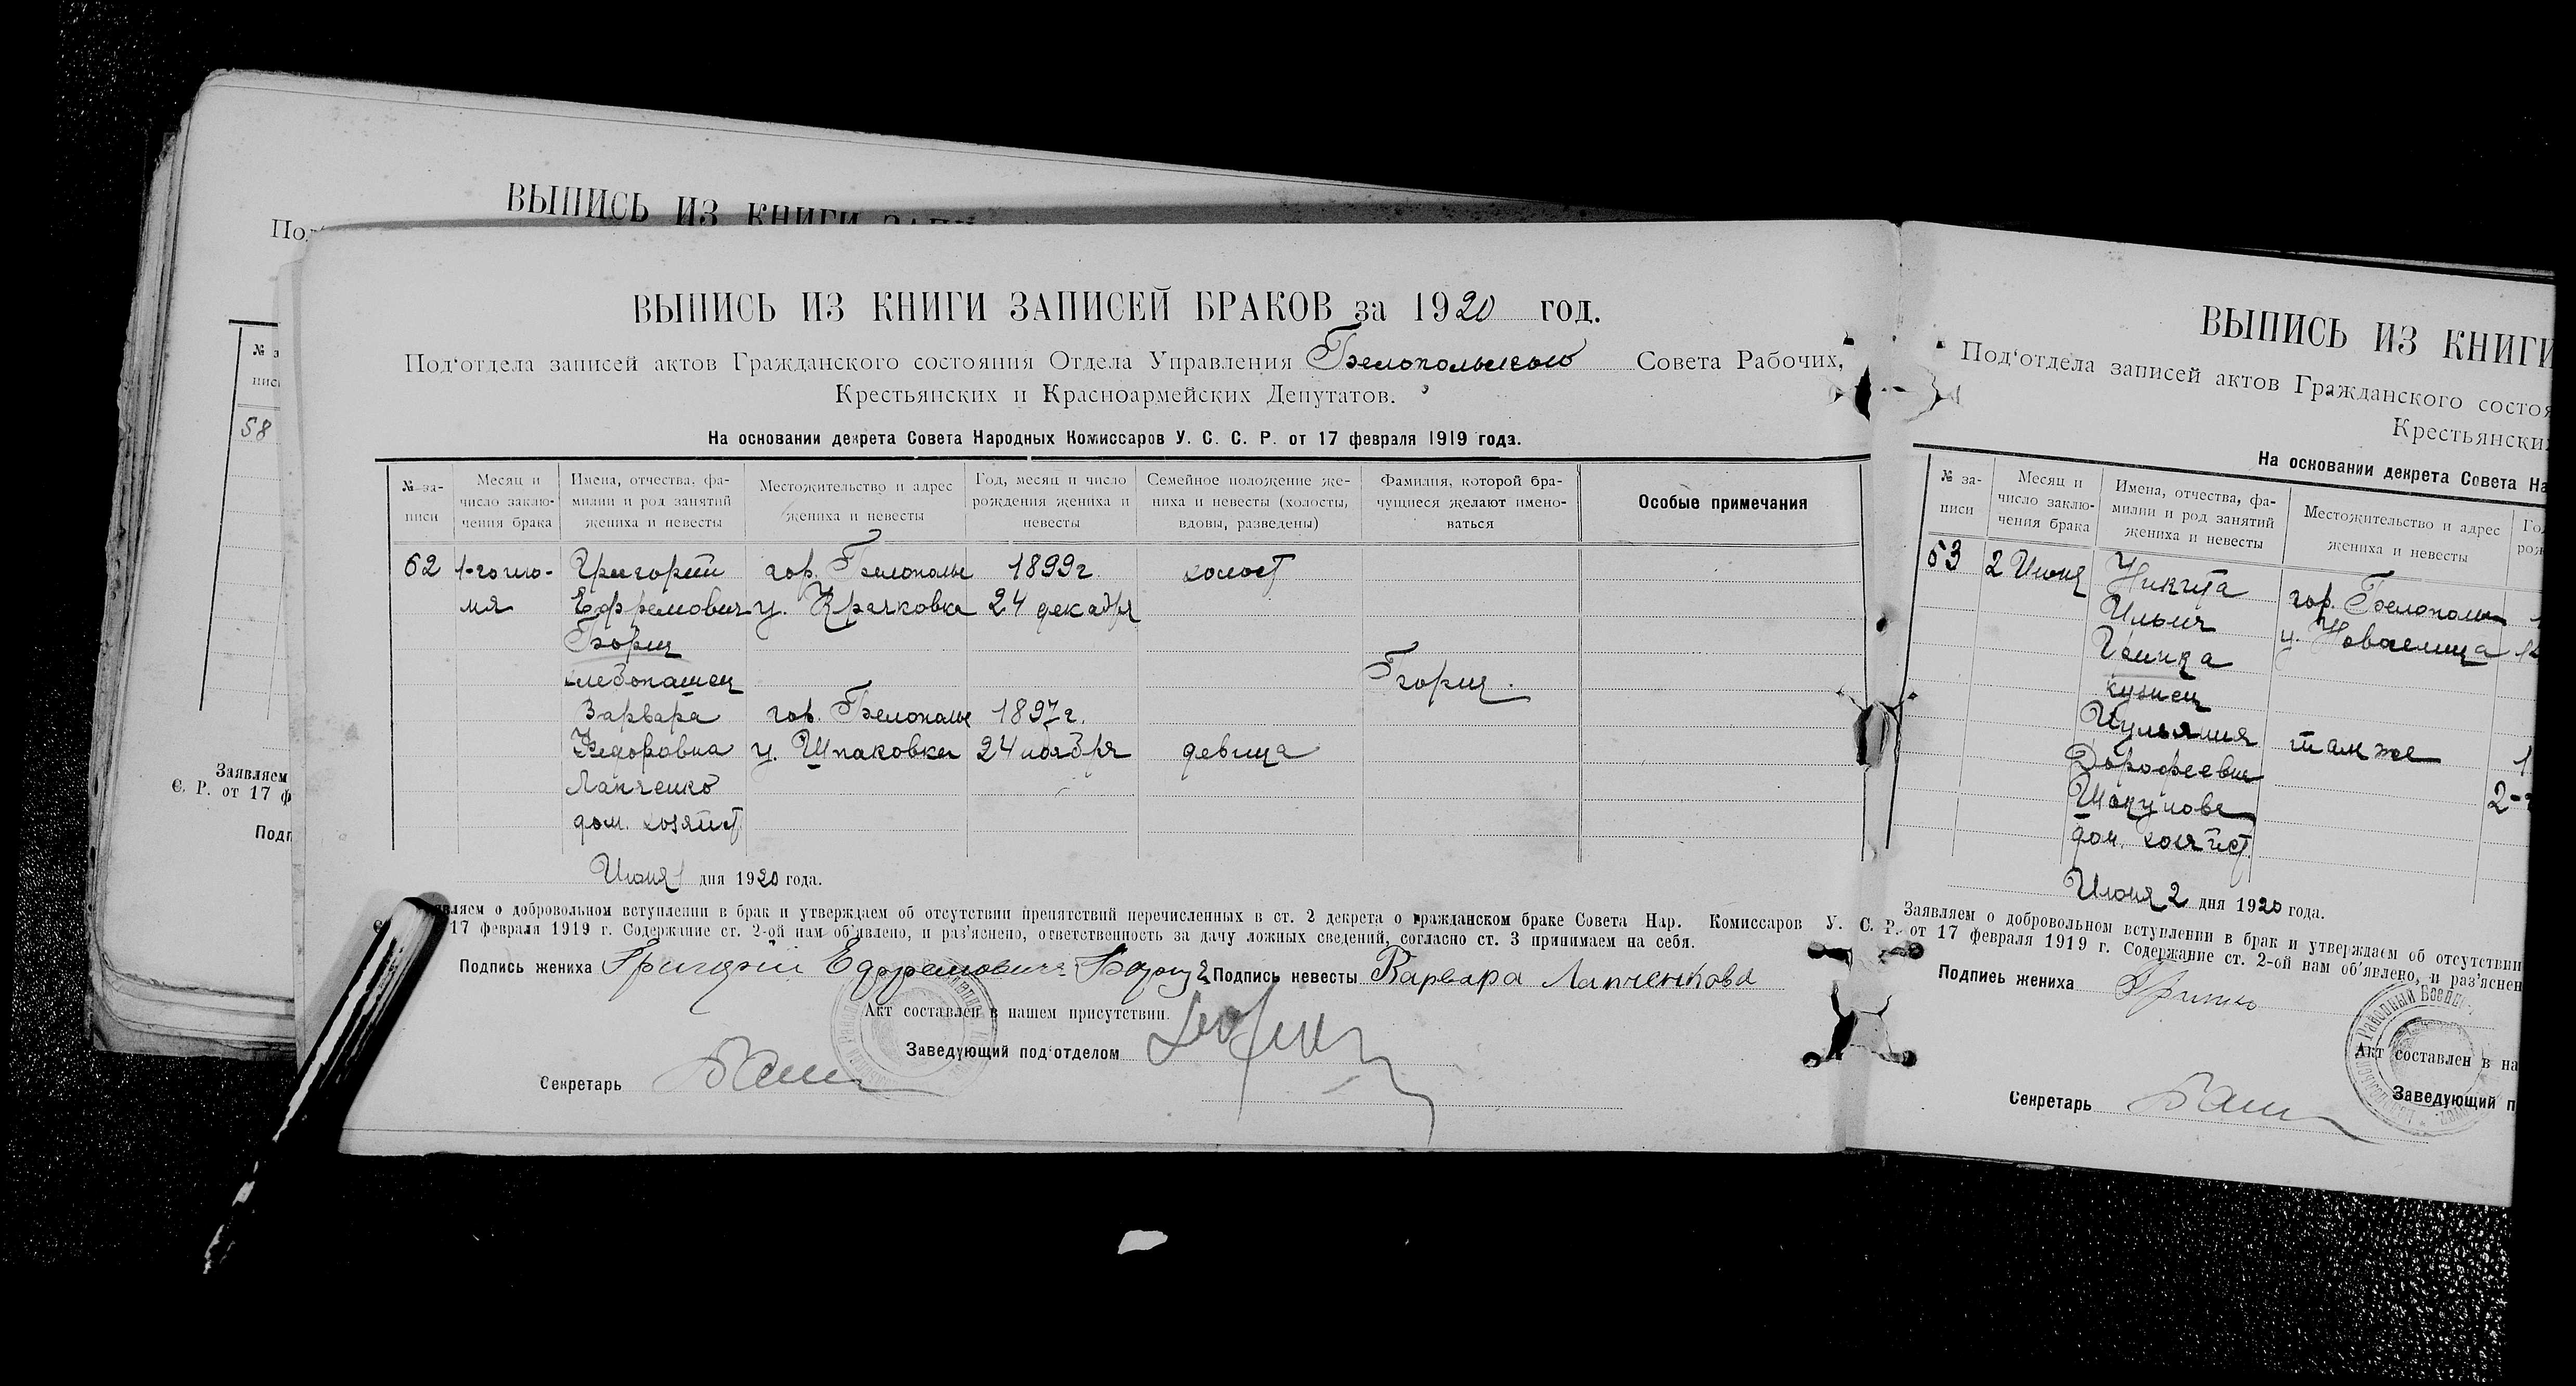 ВЫПИСЬ ИЗ КНИГИ
58
Заявляем
С. Р. от 17 ф
ВЫПИСЬ ИЗ КНИГИ ЗАПИСЕЙ БРАКОВ за 1920 год.
Под'отдела записей актов Гражданского состояния Отдела Управления Белопольского Совета Рабочих,
Крестьянских и Красноармейских Депутатов.
На основании декрета Совета Народных Комиссаров У. С. С. Р. от 17 февраля 1919 года.
№ за-
писи
Месяц и
число заклю-
чения брака
Имена, отчества, фа-
милии и род занятий
жениха и невесты
Местожительство и адрес
жениха и невесты
Год, месяц и число
рождения жениха и
невесты
Семейное положение же-
ниха и невесты (холосты,
вдовы, разведены)
Фамилия, которой бра-
чущиеся желают имено-
ваться
Особые примечания
62 1-го ию- Григорий гор. Белополье 1899 г. холост
ня Ефремович ц. Крячковка 24 декабря
Борщ
хлебопашец Борщ.
Варвара гор. Белополье 1897 г.
Федоровна ц. Шпаковка 24 ноября девица
Лапченко
дом. хозяйст.
Июня 1 дня 1920 года.
Заявляем о добровольном вступлении в брак и утверждаем об отсутствии препятствий перечисленных в ст. 2 декрета о гражданском браке Совета Нар. Комиссаров У. С.
17 февраля 1919 г. Содержание ст. 2-ой нам об'явлено, и раз'яснено, ответственность за дачу ложных сведений, согласно ст. 3 принимаем на себя.
Подпись жениха Григорий Ефремович Борщ Подпись невесты Варвара Лапченкова
Акт составлен в нашем присутствии.
Заведующий под'отделом
Секретарь
ВЫПИСЬ ИЗ КНИГИ
Под'отдела записей актов Гражданского состоя
Крестьянски
На основании декрета Совета На
№ за-
писи
Месяц и
число заклю-
чения брака
Имена, отчества, фа-
милии и род занятий
жениха и невесты
Местожительство и адрес
жениха и невесты
63 2 Июня Никита гор. Белополье
Ильич ц. Новоселица
Гринка
кузнец
Иульяния там же
Дорофеевна
Шакунова
дом. хозяйст.
Июня 2 дня 1920 года.
Заявляем о добровольном вступлении в брак и утверждаем об отсутствии
С. Р. от 17 февраля 1919 г. Содержание ст. 2-ой нам об'явлено, и раз'яснен
Подпись жениха
Акт составлен в на
Заведующий п
Секретарь